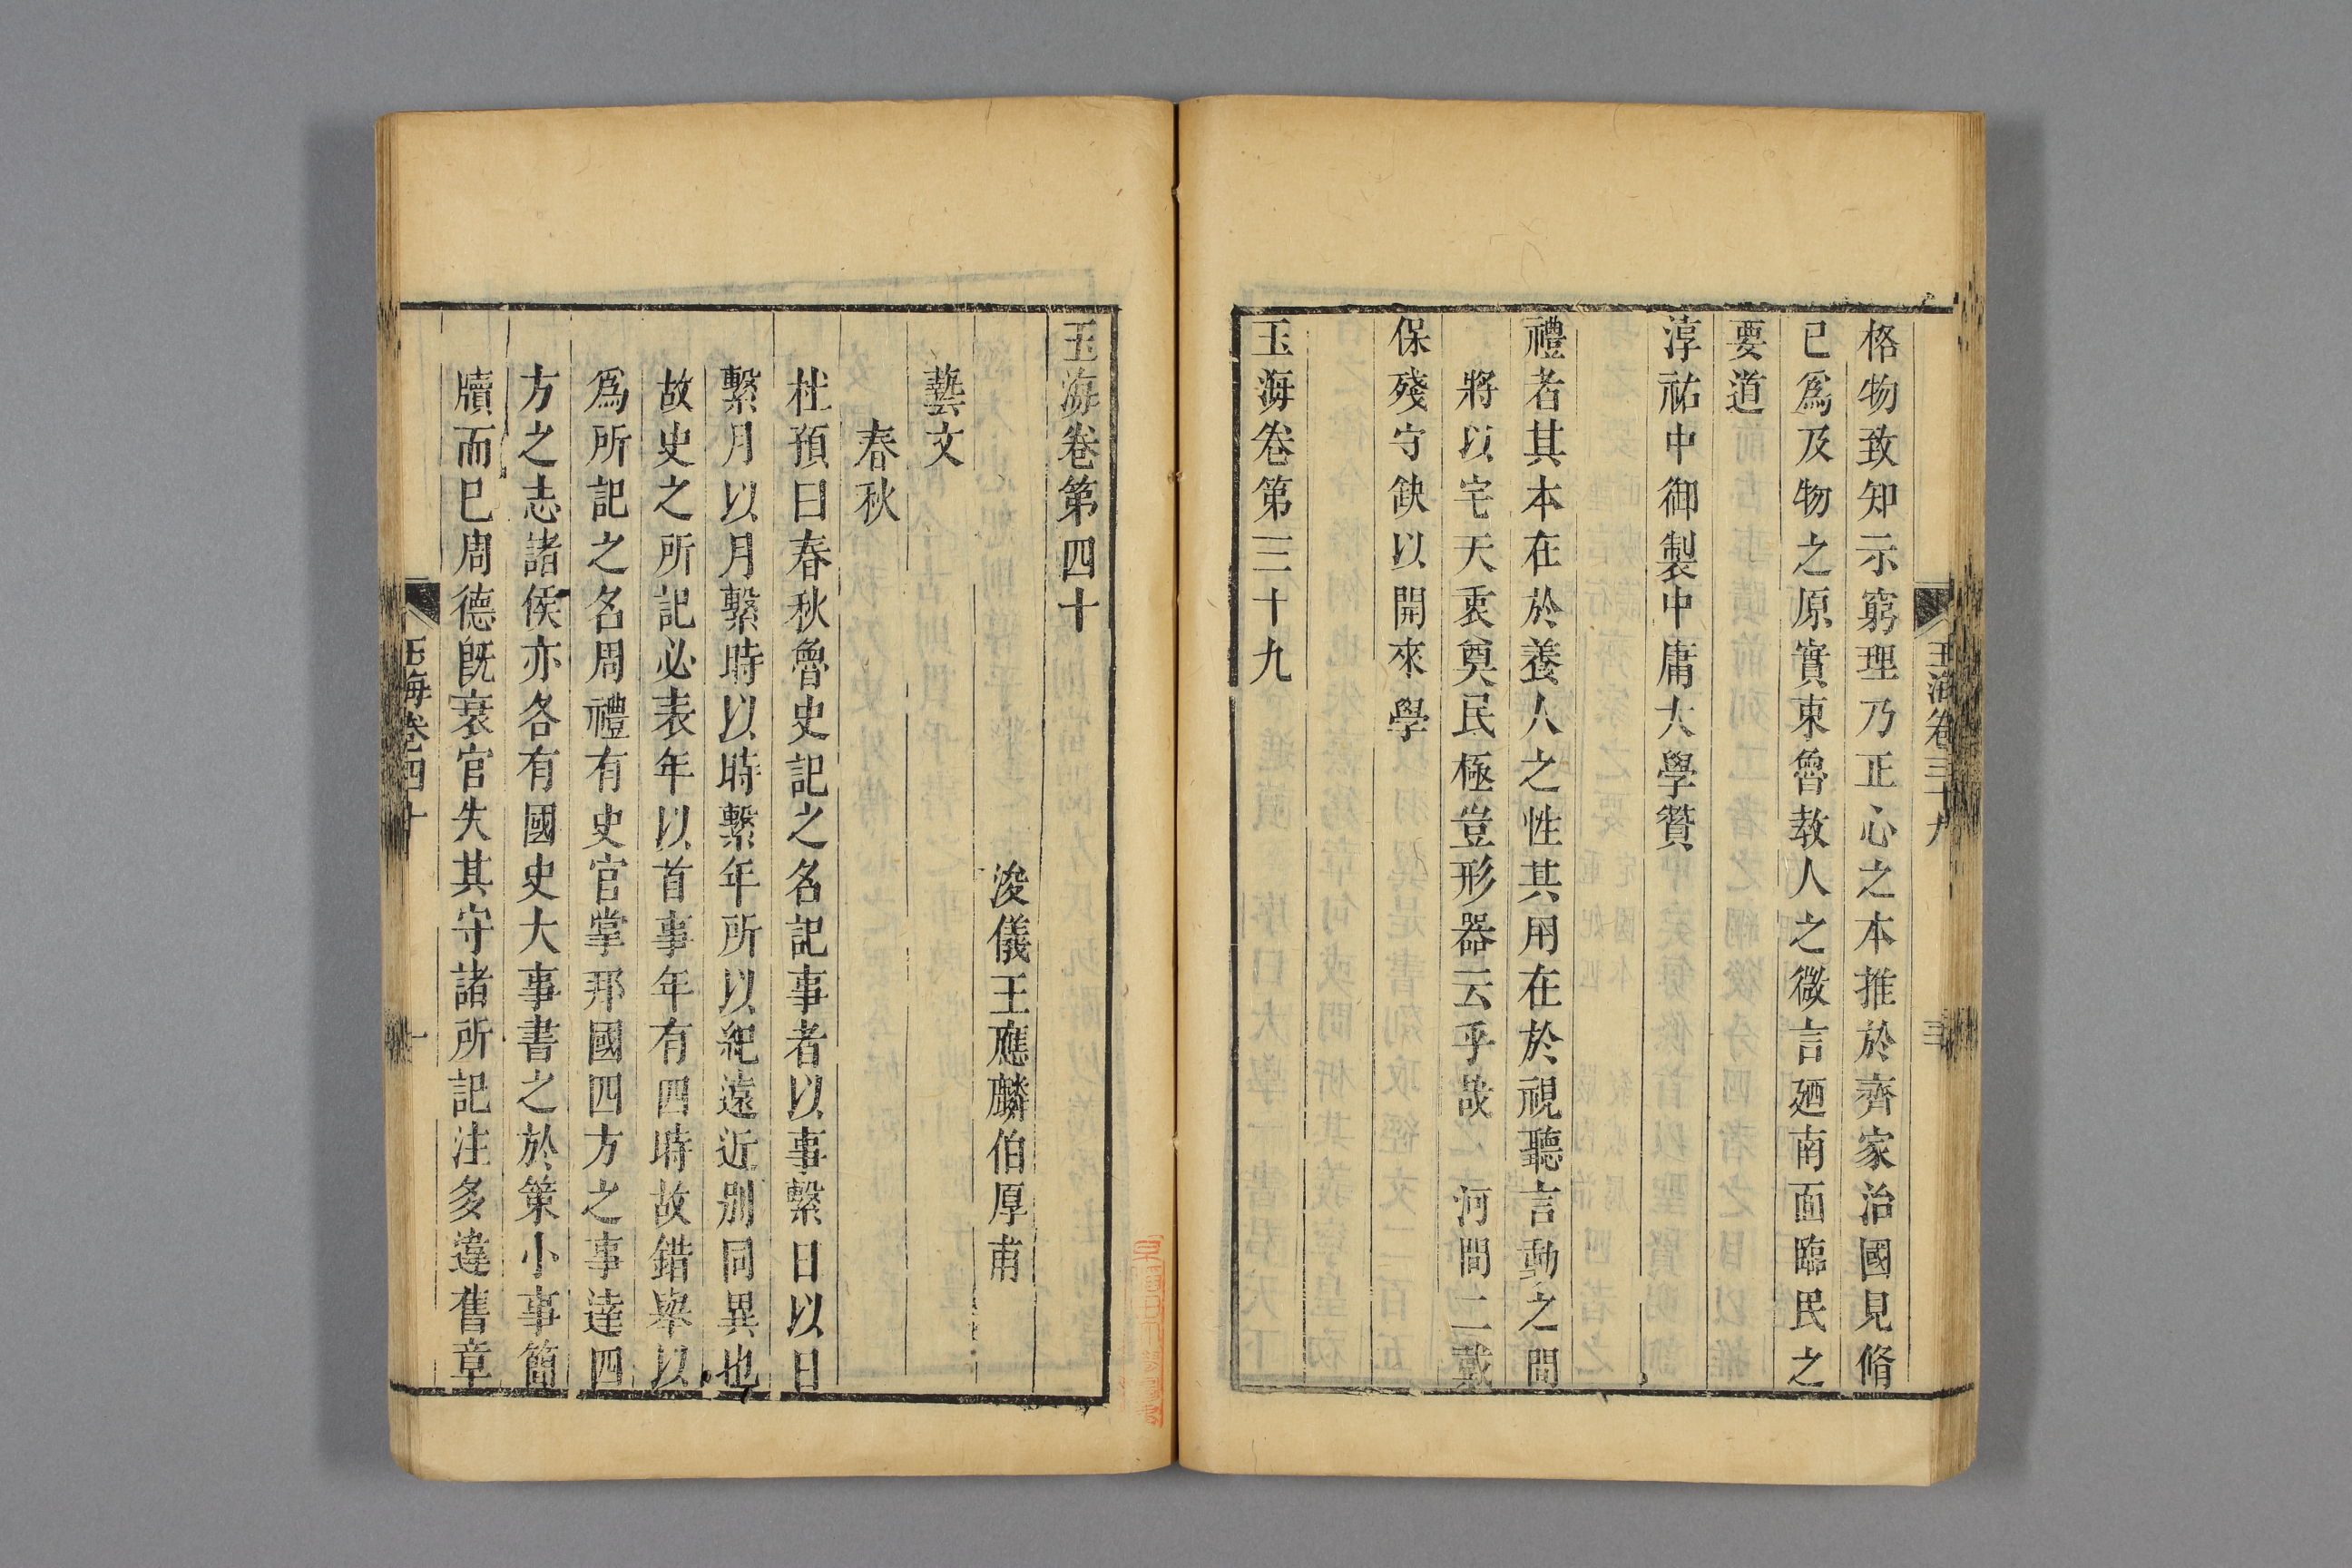 格物致知示窮理乃正心之本推於齊家治國見脩
已爲及物之原實東魯教人之微言廼南面臨民之
要道
淳祐中御製中庸大學贊
禮者其本在於養人之性其用在於視聽言動之間
將以宅天衷奠民極豈形器云乎哉 河間二戴
保殘守缺以開來學
玉海卷第三十九
玉海卷第四十
浚儀王應麟伯厚甫
藝文
春秋
杜預曰春秋魯史記之名記事者以事繫日以日
繫月以月繫時以時繫年所以紀遠近別同異也
故史之所記必表年以首事年有四時故錯舉以
爲所記之名周禮有史官掌邦國四方之事達四
方之志諸侯亦各有國史大事書之於策小事簡
牘而已周德旣衰官失其守諸所記注多違舊章
玉海卷四十